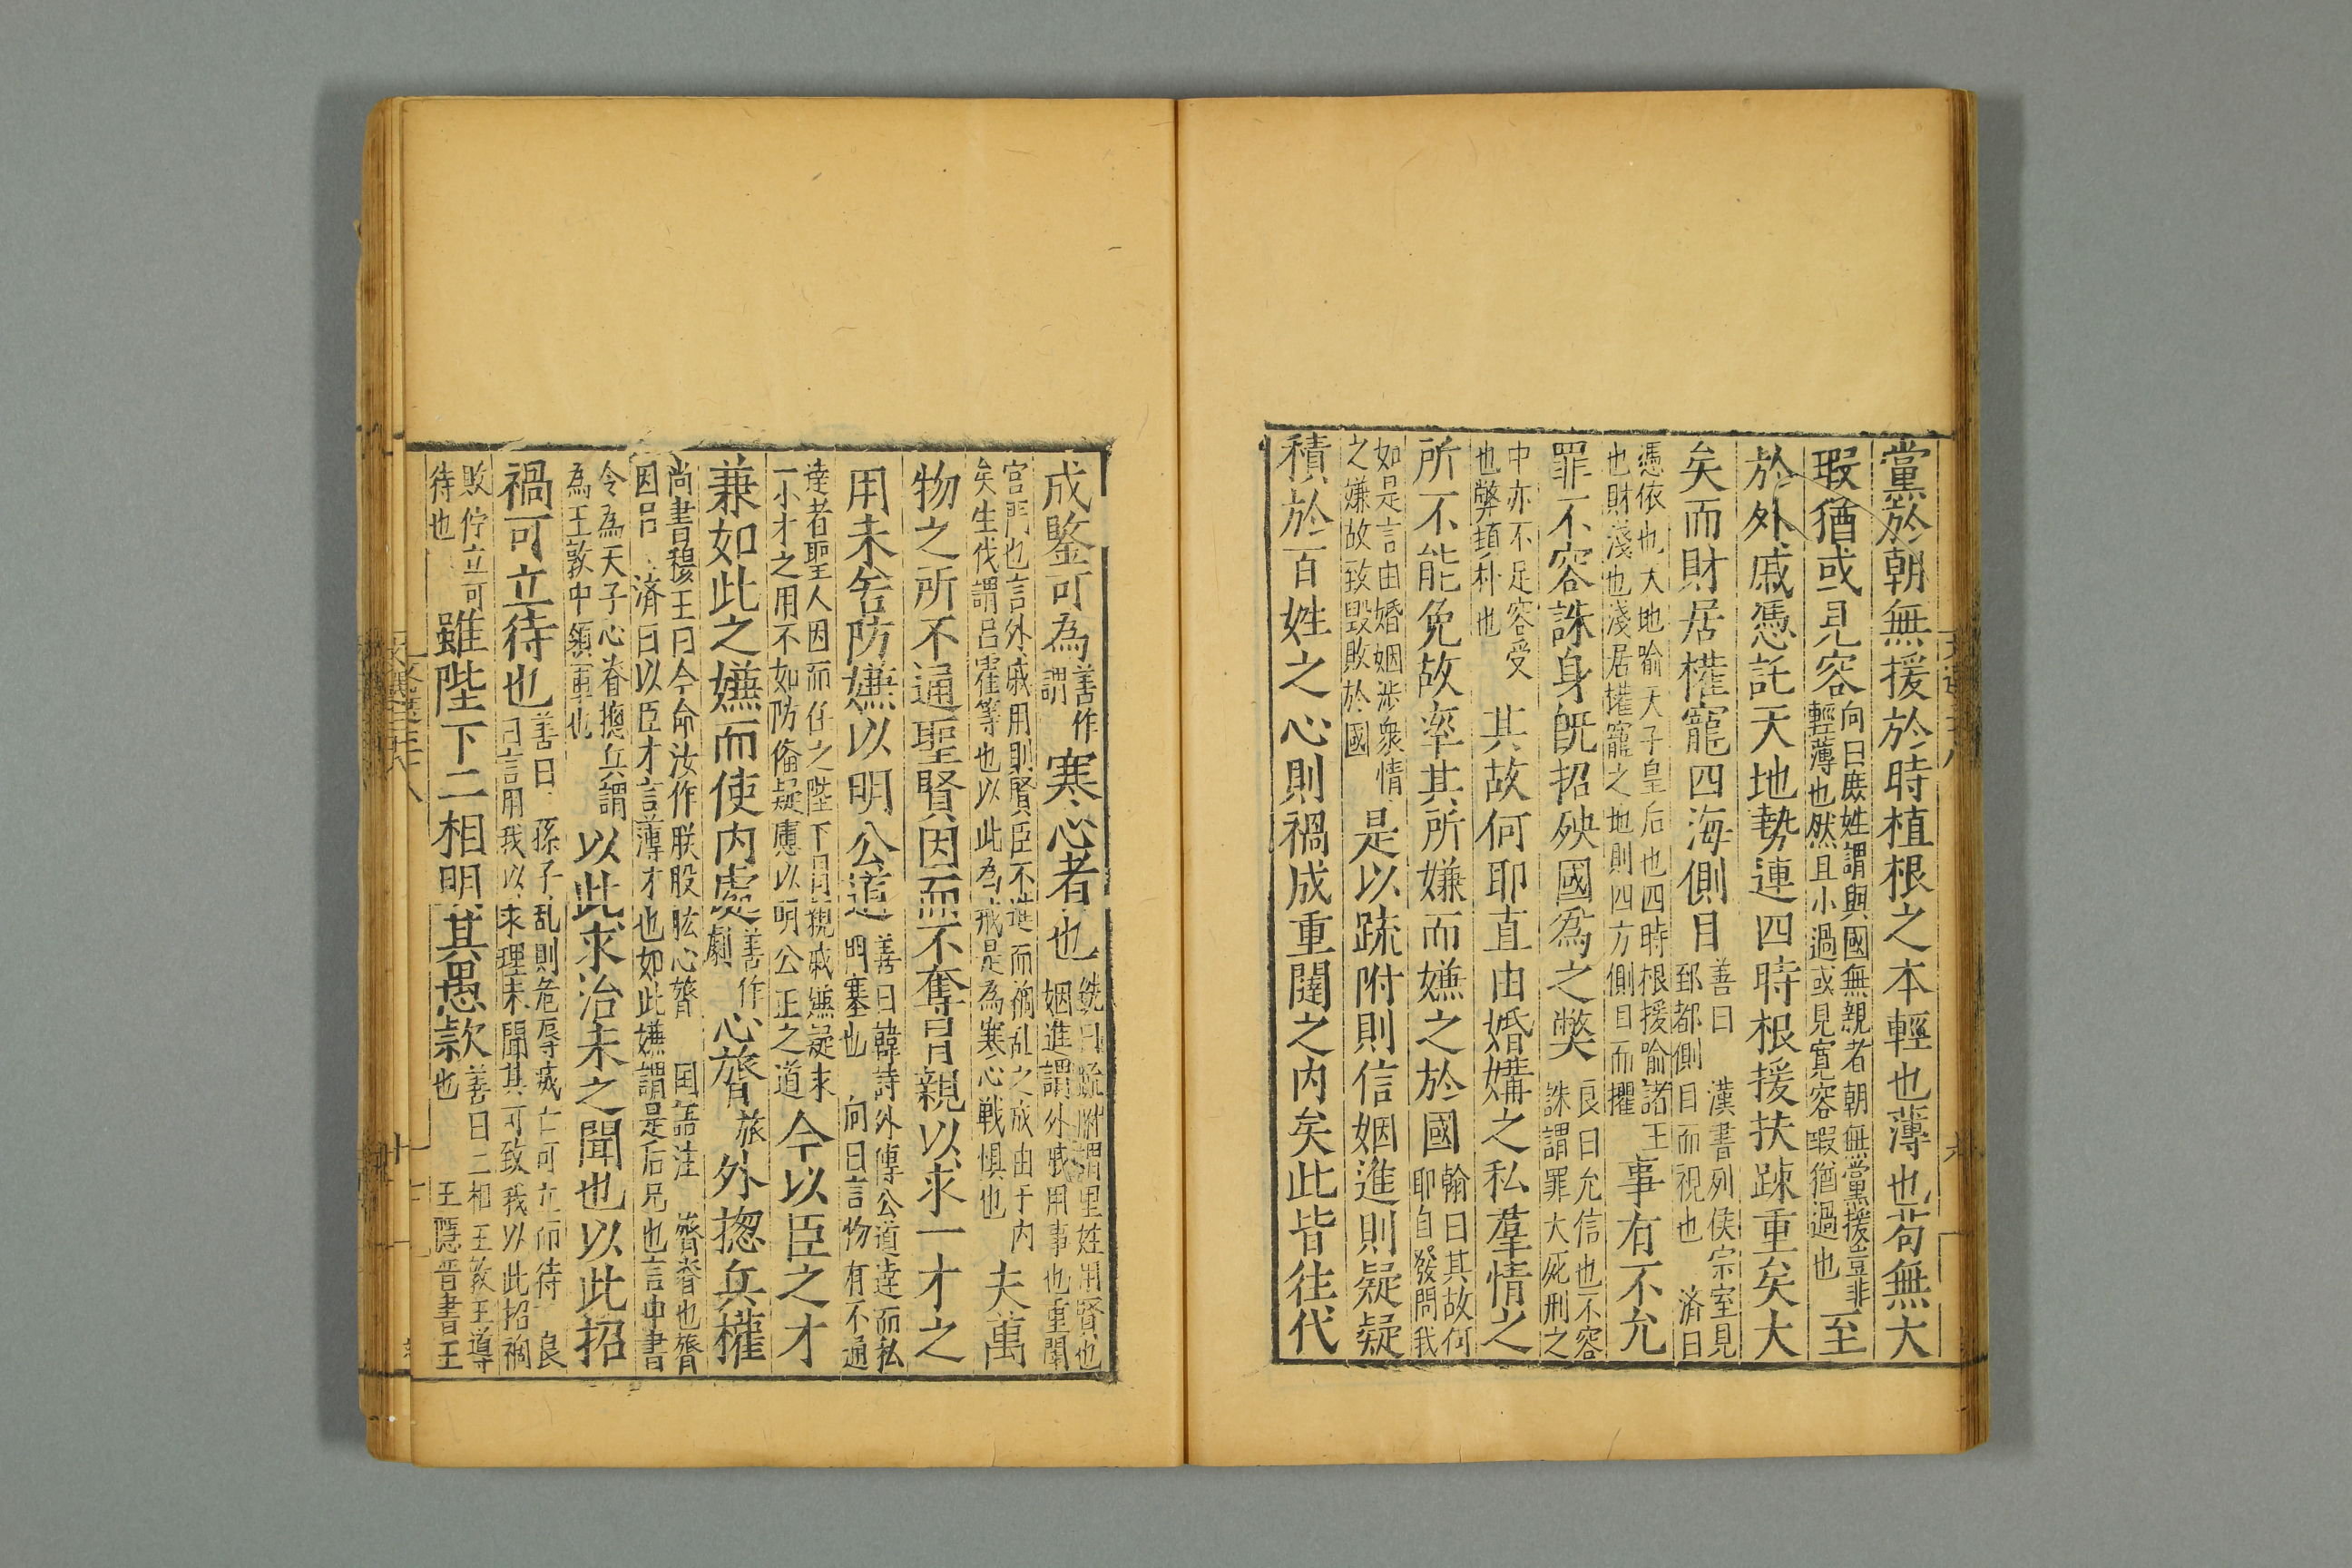 黨於朝無援於時植根之本輕也薄也苟無大
瑕猶或見容向曰庶姓謂與國無親者朝無黨援豈非輕薄也然且小過或見寬容瑕猶過也至
於外戚憑託天地勢連四時根援扶疎重矣大
矣而財居權寵四海側目善曰漢書列侯宗室見郅都側目而視也濟曰
憑依也天地喻天子皇后也四時根援喻諸王也財淺也淺居權寵之地則四方側目而懼事有不允
罪不容誅身旣招殃國為之獘良曰允信也不容誅謂罪大死刑之
中亦不足容受也弊頓朴也其故何耶直由婚媾之私羣情之
所不能免故率其所嫌而嫌之於國翰曰其故何耶自發問我
如是言由婚姻涉衆情之嫌故致毀敗於國是以疏附則信姻進則疑疑
積於百姓之心則禍成重闥之内矣此皆往代
成鑒可為善作謂寒心者也銑曰疏附謂里姓用賢也姻進謂外戚用事也重闈
宮門也言外戚用則賢臣不進而禍乱之成由于内矣生伐謂呂霍等也以此為戒是為寒心戰惧也夫萬
物之所不通聖賢因而不奪冒親以求一才之
用未若防嫌以明公道善曰韓詩外傳公道達而私門塞也向曰言物有不通
達者聖人因而任之陛下冒親戚嫌疑求一小才之用不如防倫疑慮以明公正之道今以臣之才
兼如此之嫌而使内處善作劇心膂旅外揔兵權
尚書穆王曰今命汝作朕股肱心膂国語注膂脊也膂因呂濟曰以臣才言薄才也如此嫌謂是后兄也言中書
令為天子心脊揔兵謂為王敦中領軍也以此求治未之聞也以此招
禍可立待也善曰孫子乱則危辱滅亡可立而待良曰言用我以求理未聞其可致我以此招禍
敗佇立可待也雖陛下二相明其愚款善曰二相王敦王導也王隱晋書王